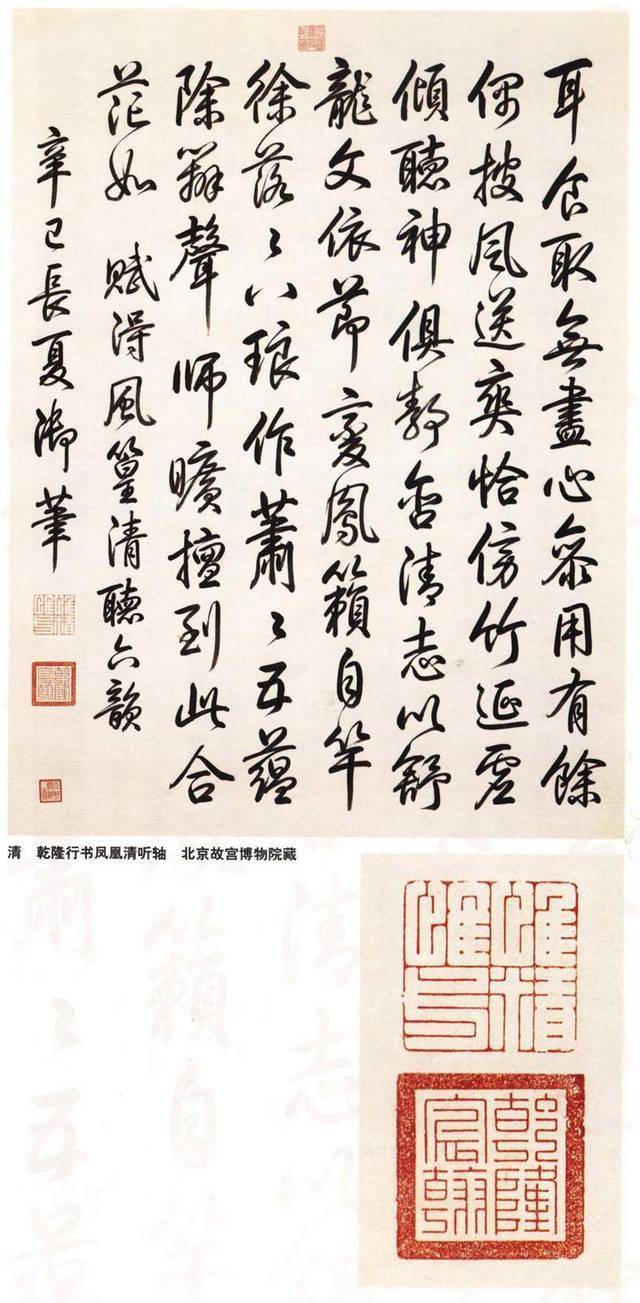 耳食取無盡心齋用有餘
偶披風送爽恰傍竹延虛
傾聽神俱靜含清志以舒
龍文依節變鳳籟自竿
徐落〻八琅作蕭〻五蘊
除辨聲師曠擅到此合
茫如 賦得風篁清聽六韻
辛巳長夏御筆
清 乾隆行书凤凰清听轴 北京故宫博物院藏
乾隆宸翰